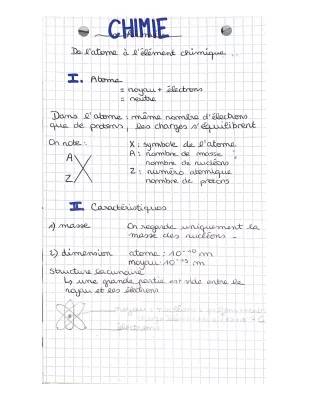 CHIMIE
De l'atome à l'élément chimique...
I. Atome
= noyau + électrons
= neutre
Dans l'atome : même nombre d'électrons
que de protons, les charges s'équilibrent
On note :
A X
Z
X : symbole de l'atome
A : nombre de masse
nombre de nucléons
Z : numéro atomique
nombre de protons
II Caractéristiques
1) masse
On regarde uniquement la
masse des nucléons.
2) dimension
atome : 10⁻¹⁰ m
noyau : 10⁻¹⁵ m
Structure lacunaire
↳ une grande partie est vide entre le
noyau et les électrons
électrons